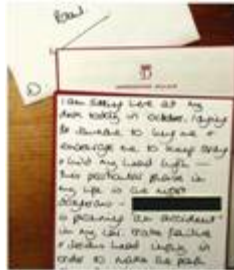 I am sitting here at my
desk today in October, longing
for someone to hug me &
encourage me to keep strong
& hold my head high —
this particular phase in
my life is the most
dangerous –
is planning "an accident"
in my car. brake failure
& serious head injury in
order to make the path